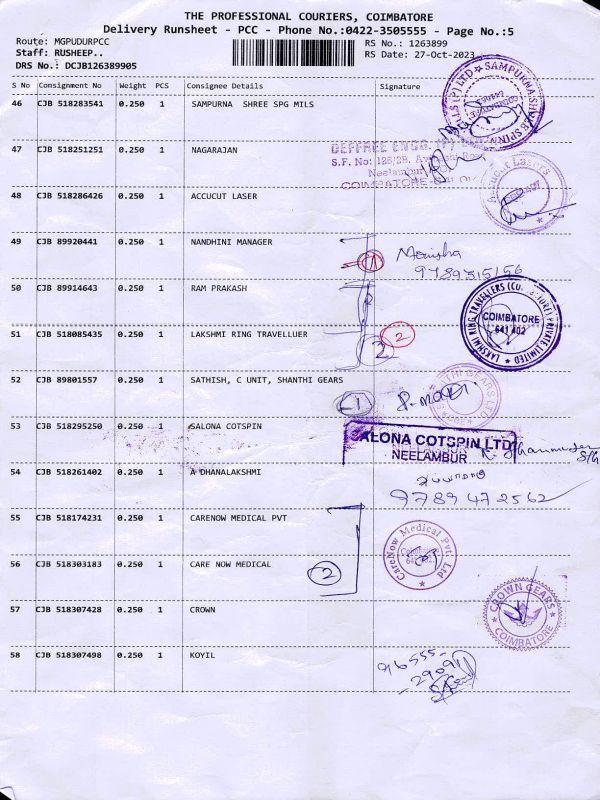 THE PROFESSIONAL COURIERS, COIMBATORE
Delivery Runsheet - PCC - Phone No.:0422-3505555 - Page No.:5
Route: MGPUDURPCC
RS No.: 1263899
Staff: RUSHEEP..
RS Date: 27-Oct-2023
DRS No.: DCJB126389905
S No Consignment No Weight PCS Consignee Details Signature
46 CJB 518283541 0.250 1 SAMPURNA SHREE SPG MILS
47 CJB 518251251 0.250 1 NAGARAJAN
S.F. No:
Neelambur
COIMBATORE
48 CJB 518286426 0.250 1 ACCUCUT LASER
Lasers
49 CJB 89920441 0.250 1 NANDHINI MANAGER
1
Monisha
9789515156
50 CJB 89914643 0.250 1 RAM PRAKASH
COIMBATORE
641 402
LAKSHMI RING TRAVELLERS PRIVATE LIMITED
51 CJB 518085435 0.250 1 LAKSHMI RING TRAVELLUER
2
2
52 CJB 89801557 0.250 1 SATHISH, C UNIT, SHANTHI GEARS
1
53 CJB 518295250 0.250 1 SALONA COTSPIN
SALONA COTSPIN LTD
NEELAMBUR
54 CJB 518261402 0.250 1 A DHANALAKSHMI
9789472562
55 CJB 518174231 0.250 1 CARENOW MEDICAL PVT
CareNow Medical Pvt Ltd
56 CJB 518303183 0.250 1 CARE NOW MEDICAL
2
57 CJB 518307428 0.250 1 CROWN
CROWN GEARS
COIMBATORE
58 CJB 518307498 0.250 1 KOYIL